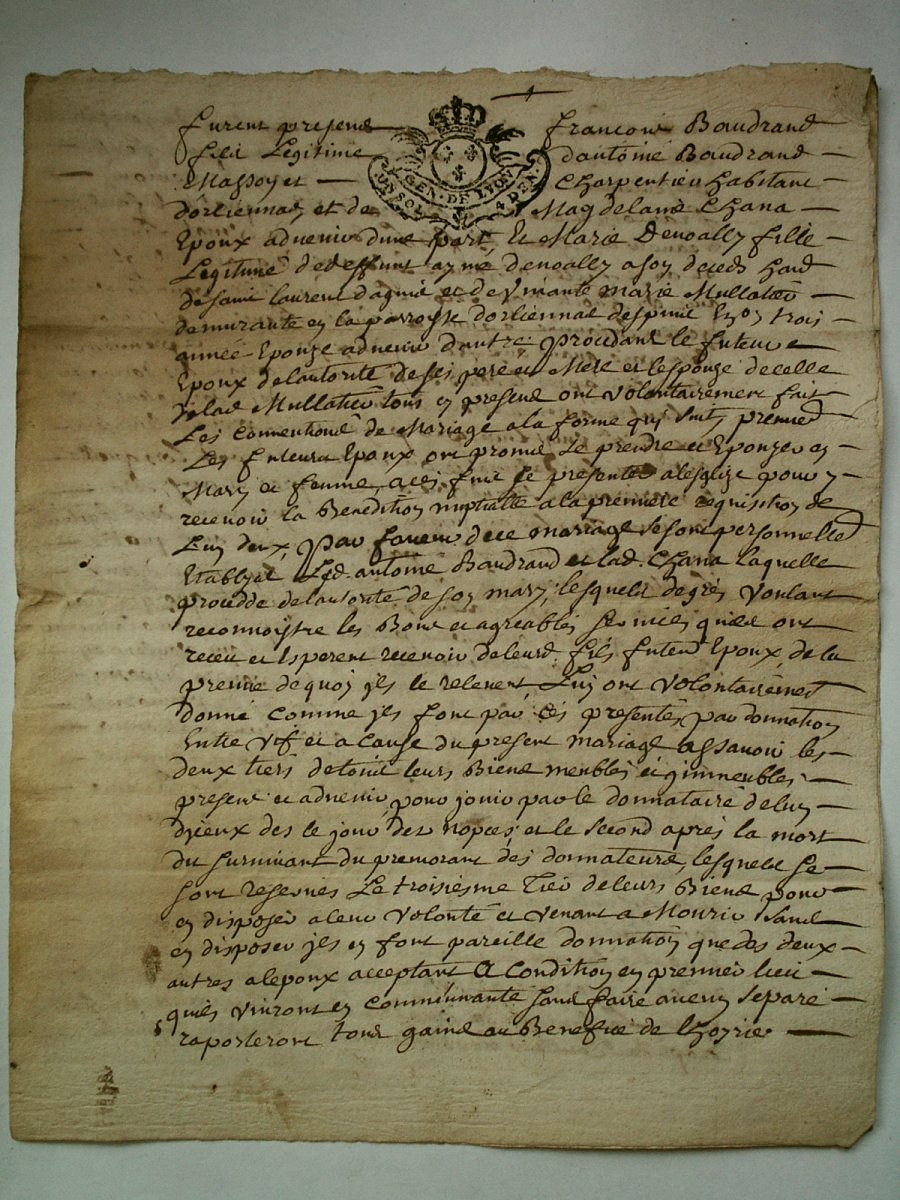 furent presens françois Baudrand
fils Legitime dantoine Baudrand
Massoyer charpentier habitant
dorliennas et de Magdelaine Chana
GEN · DE LYON
UN SOL 4 DEN.
Epoux advenir dune part, Et Marie Denoally fille
Legitime de deffunt aymé denoally a son deceds
de saint laurent dagnié et de vivante marie Mullatier
demurante en la parroisse dorliennas despuis trois
année Epouze advenir dautre procedant le futeur
Epoux delautorité de ses pere et Mere et lesponze de celle
de lad Mullatier tous en presens ont volontairement fait
Les conventions de Mariage a la forme qui suit, premier
Les futeurs Epoux ont promis se prendre et Eponzer en
Mary et femme, a ces fins se presenter a lesglize pour y
recevoir la Benediction nuptialle a la premiere requisition de
Lun deux, par faveur de ce mariage se sont personnelle
Etablyes Led. antoine Baudrand et lad. Chana laquelle
procedde de lautorité de son mary, lesquels de grés voulant
reconnoystre les Bons et agreables services quils ont
receu et Esperent recevoir de leurd. fils futeur Epoux, de la
preuve de quoy jls le relevent, Luy ont volontairement
donné comme jls font par ces presentes, par donnation
Entre vif et a cause du present mariage assavoir les
deux tiers de tous leurs Biens meubles et jmmeubles
present et advenir, pour jouir par le donnataire de lun
djceux des le jour des nopces et le second aprés la mort
du survivant du premorant des donnateurs, lesquels se
sont reservés Le troisiesme tier de leurs Biens pour
en disposer a leur volonté et venant a Mourir sans
en disposer jls en font pareille donnation que des deux
autres a lepoux acceptant A condition en premier lieu
quils vivront en communante sans faire aucun separé
raporteront tous gains au Benefice de lhoyrie